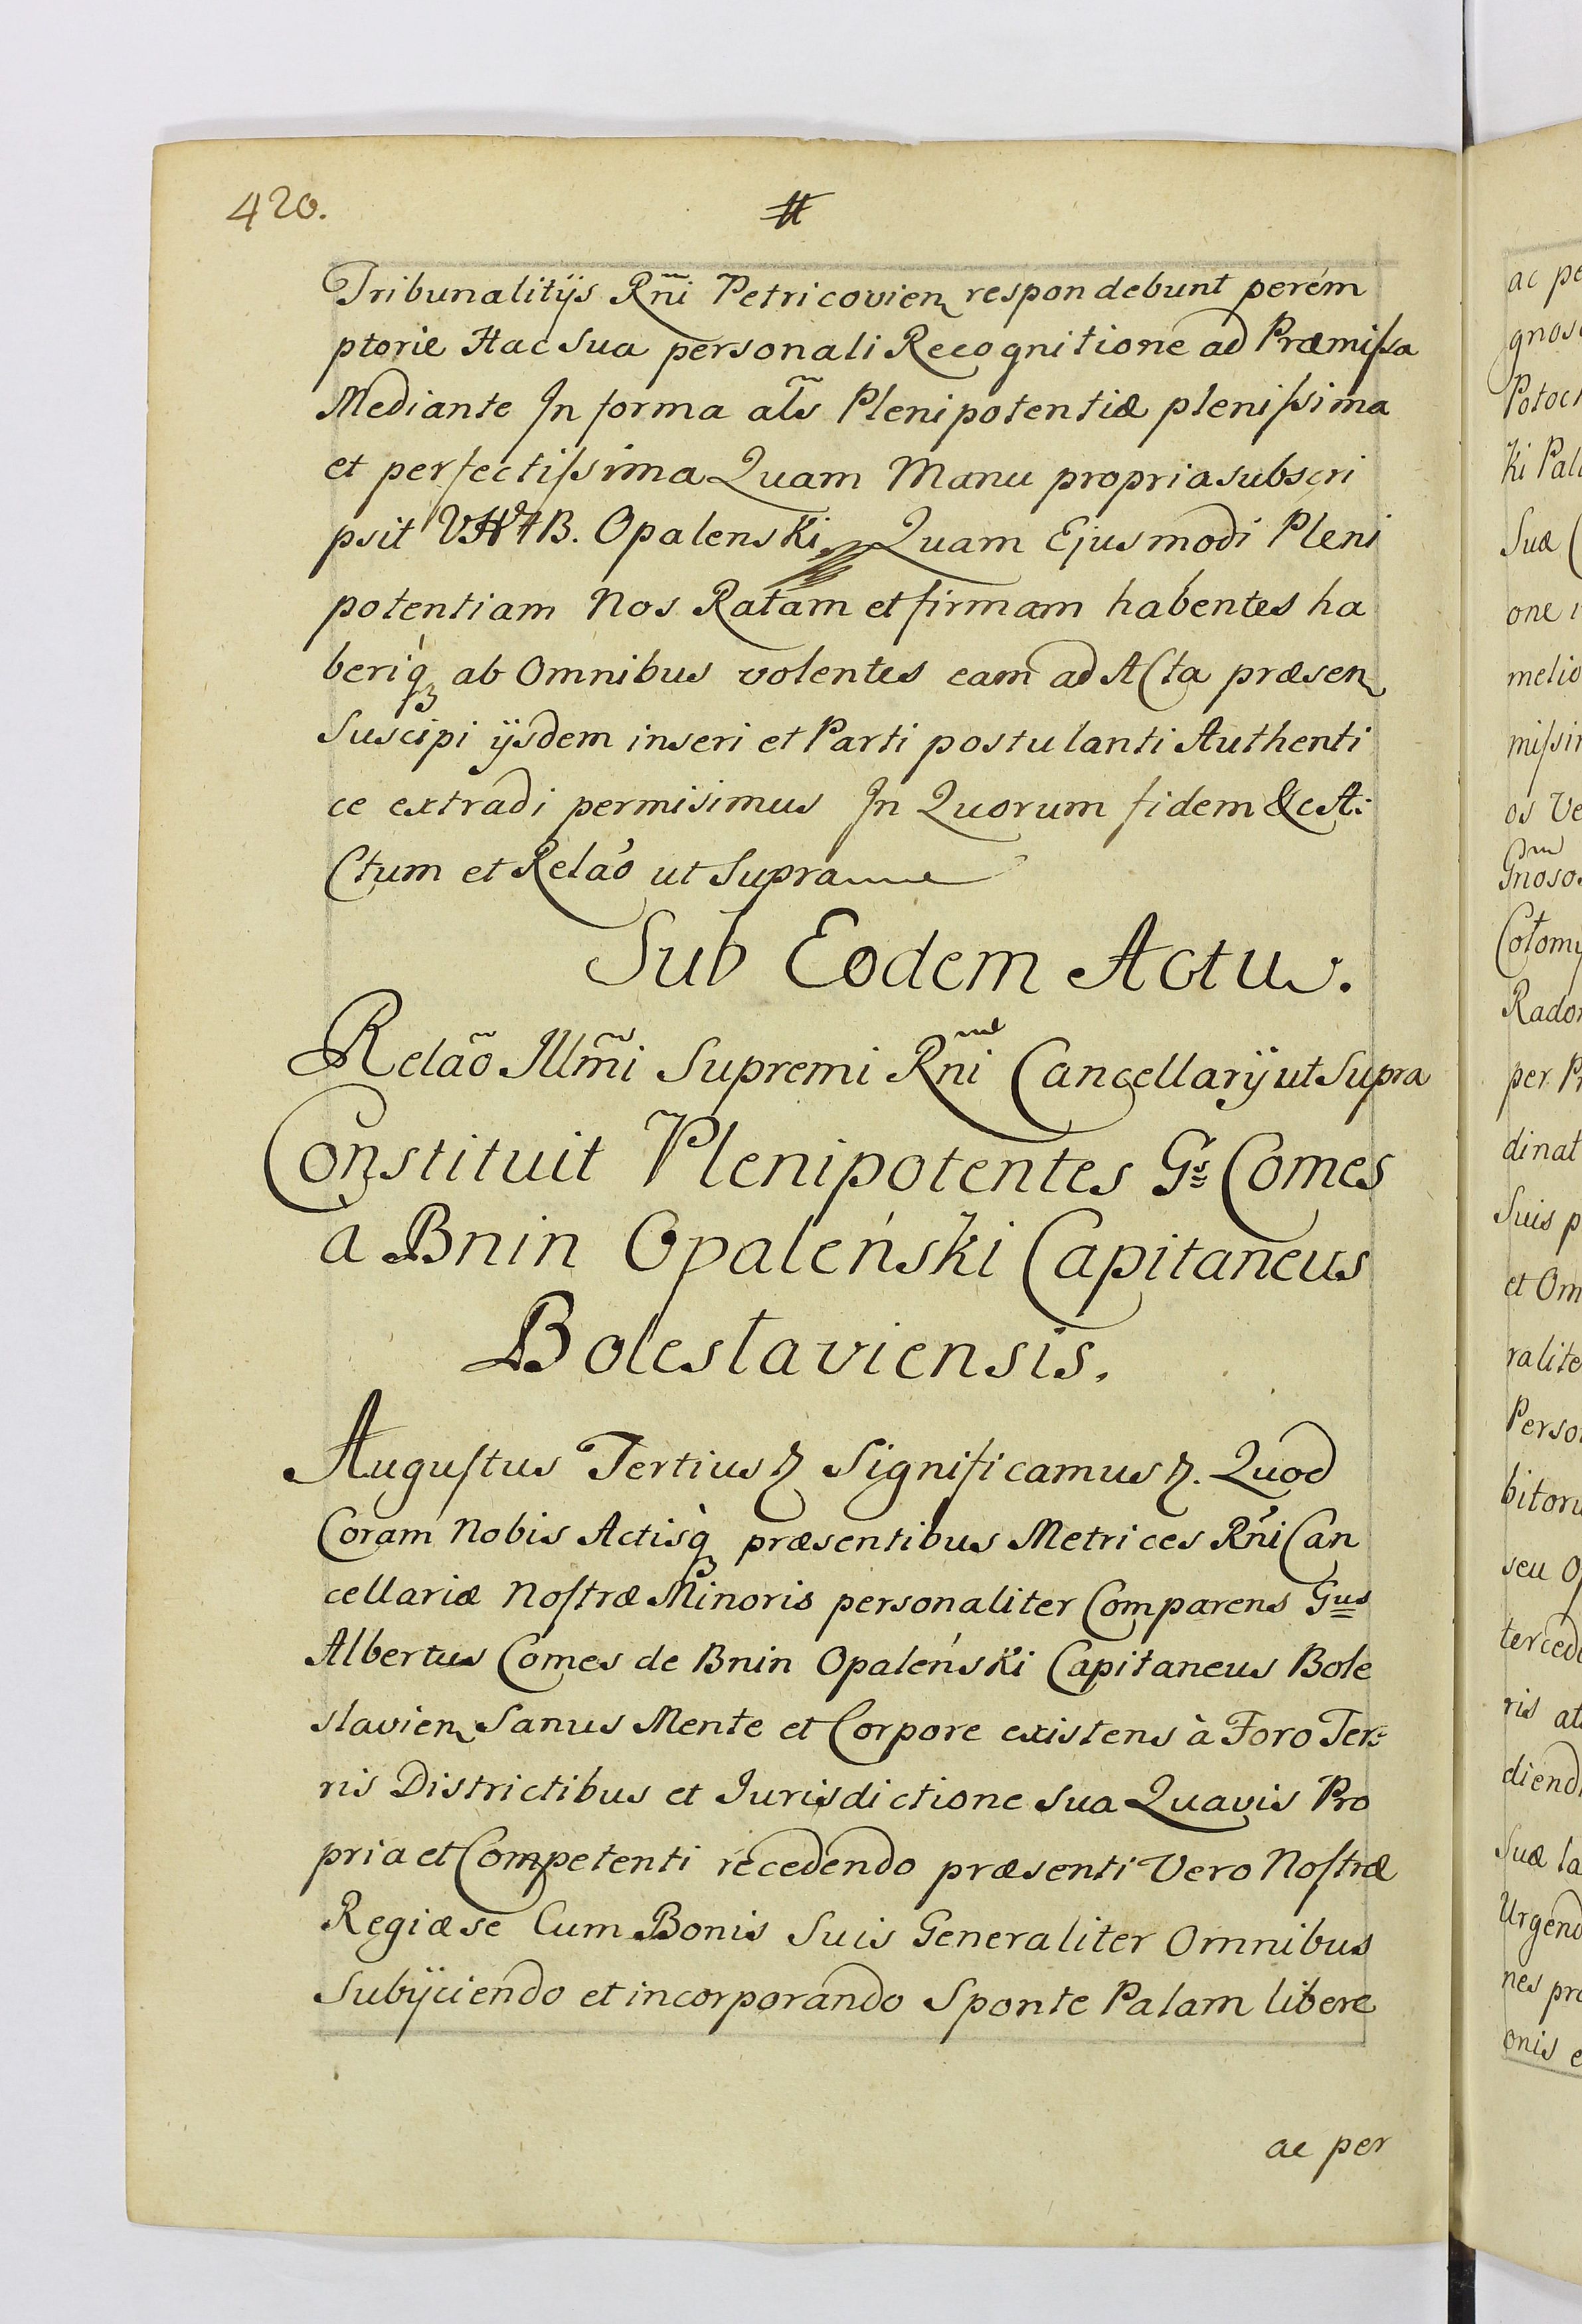 420.
Tribunalitijs Rñi Petricovien respondebunt perém
ptorie Hac Sua personali Recognitione ad Præmissa
Mediante In forma als̃ Plenipotentiæ plenissima
et perfectissima Quam Manu propria subscri
psit B. Opalenski Quam Ejusmodi Pleni
potentiam Nos Ratam et firmam habentes ha
beriq́ ab Omnibus volentes eam ad Acta præsen
Suscipi ijsdem inseri et Parti postulanti Authenti
ce extradi permisimus In Quorum fidem &c A:
Ctum et Relaó ut Supra
Sub Eodem Actu.
Relaõ Illm̃i Supremi Rñi Cancellarij ut Supra
Constituit Plenipotentes Gs Comes
a Bnin Opaleński Capitaneus
Boleslaviensis.
Augustus Tertius Significamus Quod
Coram Nobis Actisq̀ præsentibus Metrices Rńi Can
cellariæ Nostræ Minoris personaliter Comparens Gus
Albertus Comes de Bnin Opaleński Capitaneus Bole
slavien Sanus Mente et Corpore existens à Foro Ter:
ris Districtibus et Jurisdictione Sua Quavis Pro
pria et Competenti recedendo præsenti Vero Nostræ
Regiæ se Cum Bonis Suis Generaliter Omnibus
Subijciendo et incorporando Sponte Palam libere
ac per
ac pe
gnos
Potoc
ki Pal
Suæ
one
melio
missi
os Ve
Gnoso
Colom
Rado
per P
dinat
Suis p
et Om
ralite
Perso
bitor
seu
terced
ris
diend
Suæ la
Urgend
nes pr
onis e